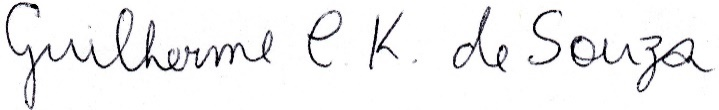 Guilherme C. K. de Souza